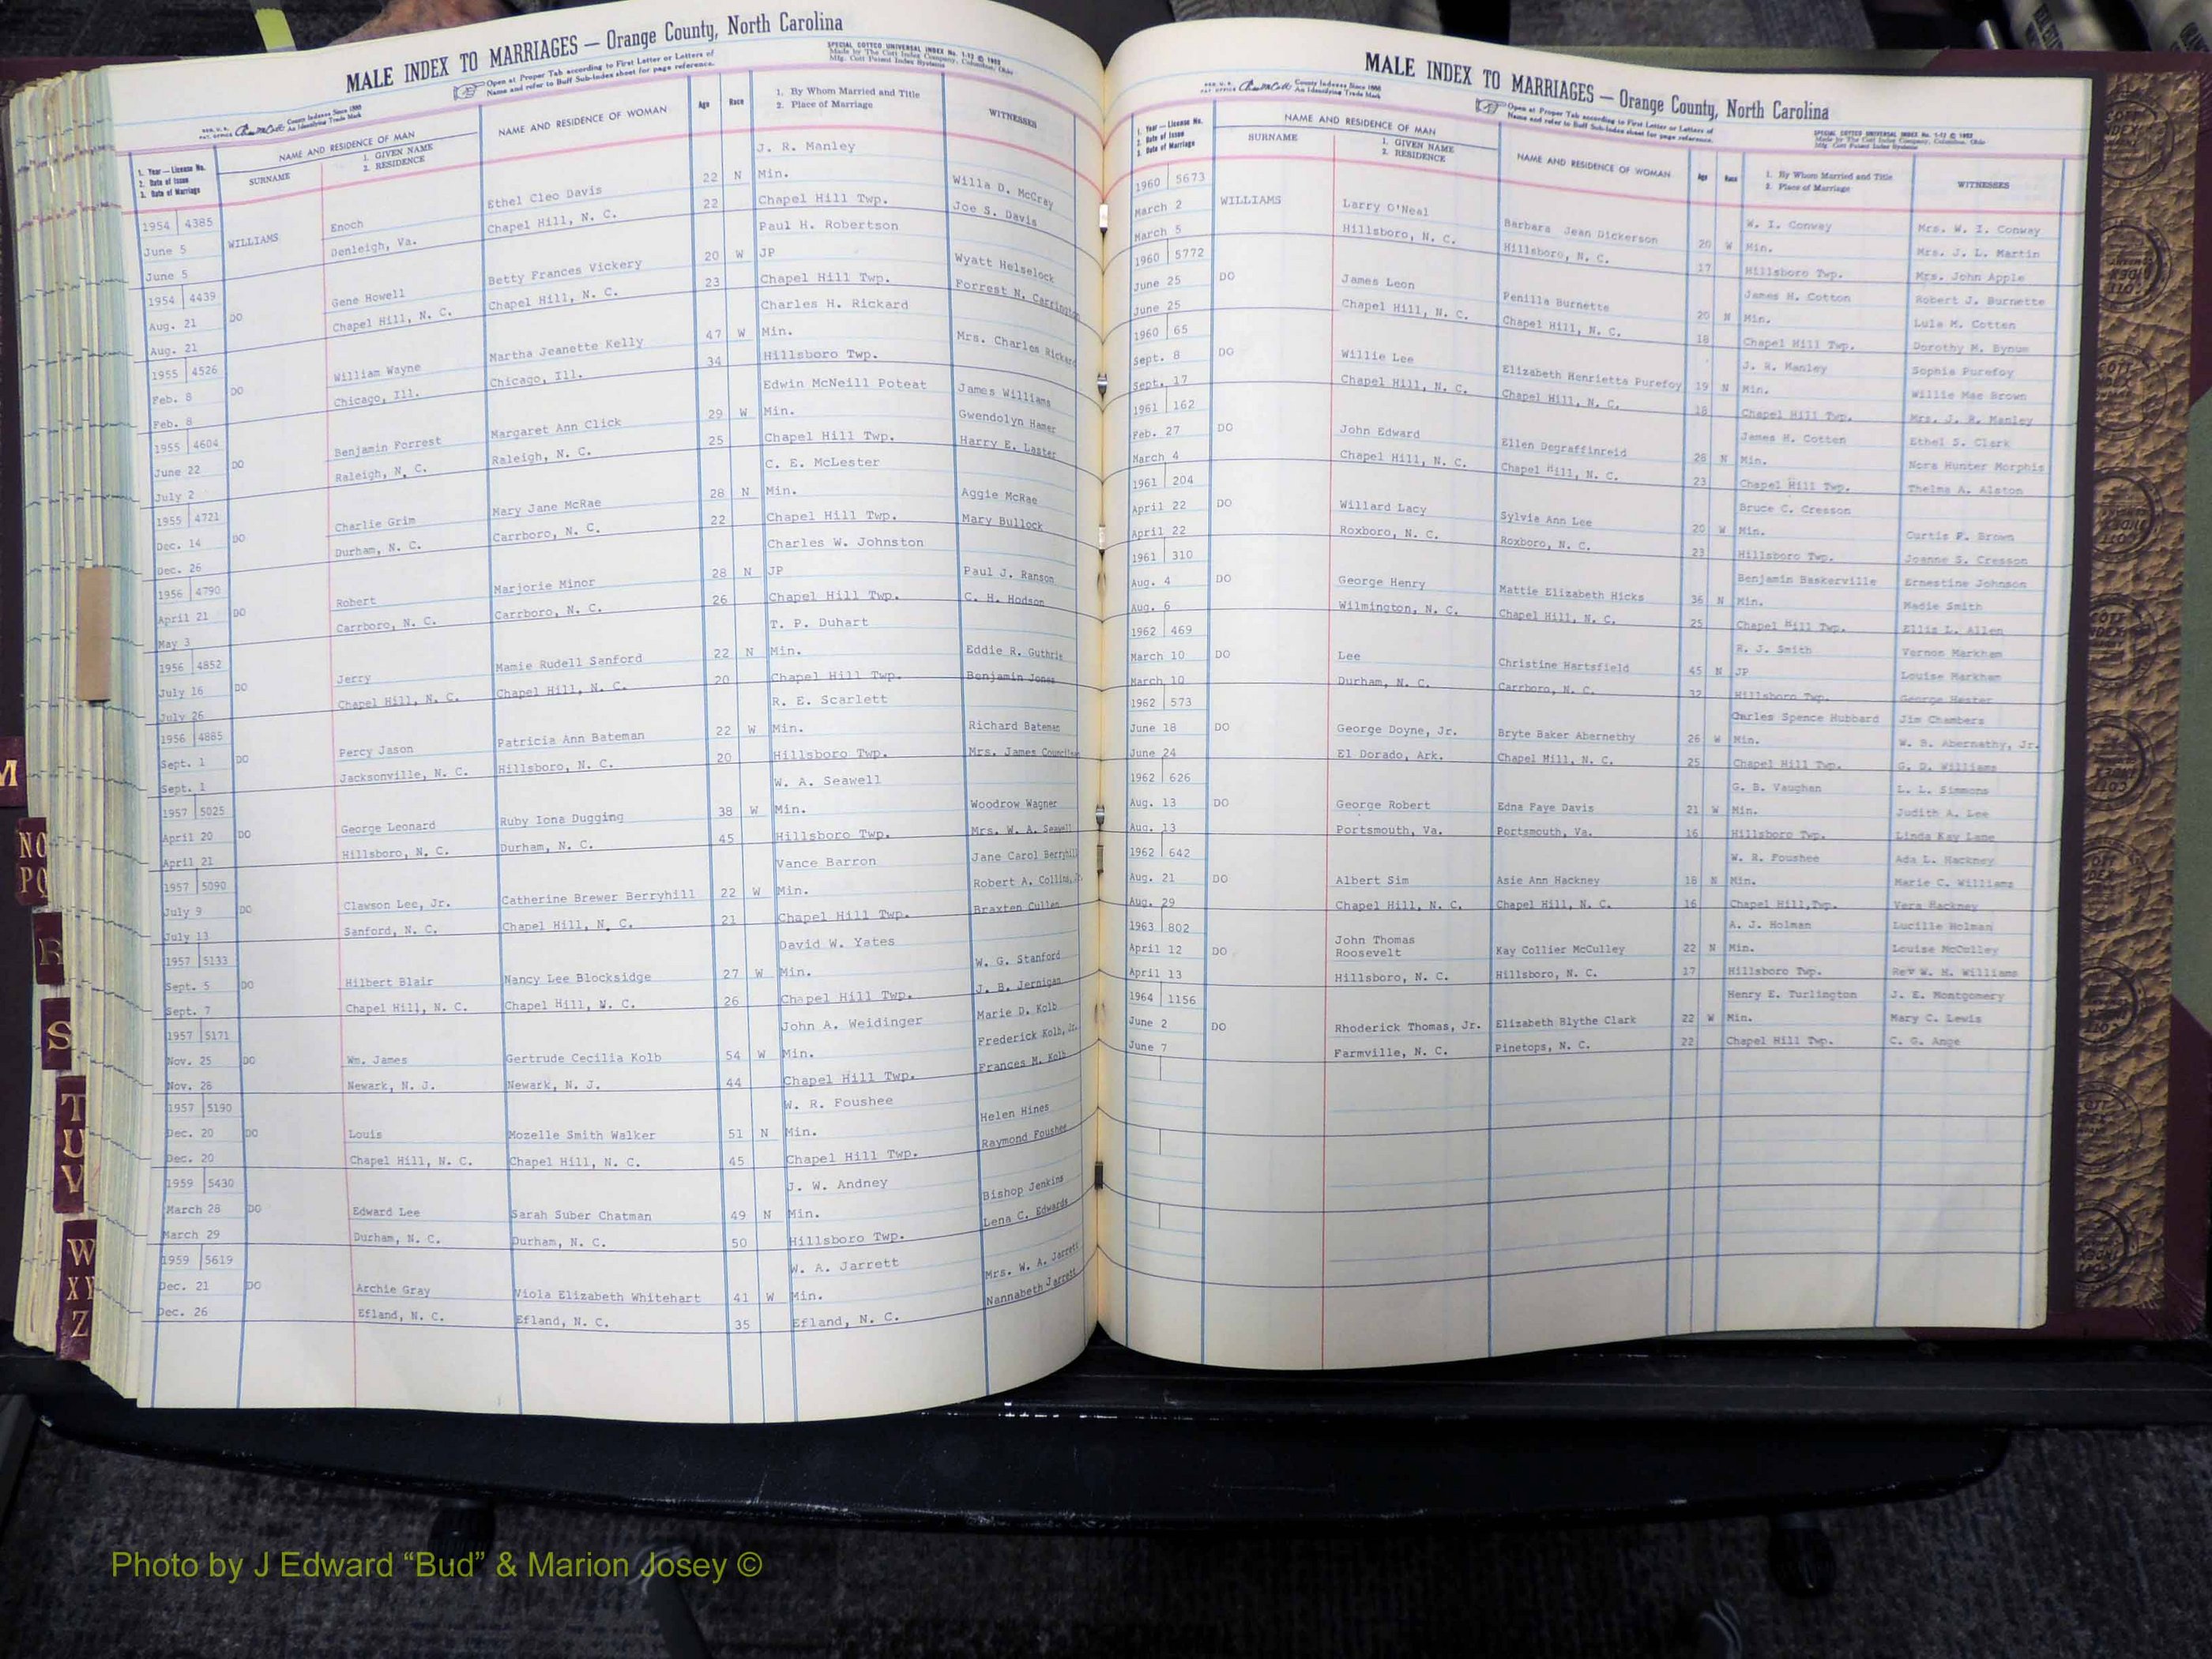 MALE INDEX TO MARRIAGES — Orange County, North Carolina
Open at Proper Tab according to First Letter or Letters of
Name and refer to Buff Sub-Index sheet for page reference.
SPECIAL COTTCO UNIVERSAL INDEX No. 1-12 © 1952
Made by The Cott Index Company, Columbus, Ohio
Mfg. Cott Patent Index Systems
County Indexes Since 1888
An Identifying Trade Mark
1. Year — License No.
2. Date of Issue
3. Date of Marriage
NAME AND RESIDENCE OF MAN
SURNAME
1. GIVEN NAME
2. RESIDENCE
NAME AND RESIDENCE OF WOMAN
Age Race
1. By Whom Married and Title
2. Place of Marriage
WITNESSES
J. R. Manley
1954 4385 Ethel Cleo Davis 22 N Min. Willa D. McCray
June 5 WILLIAMS Enoch Chapel Hill, N. C. 22 Chapel Hill Twp. Joe S. Davis
June 5 Denleigh, Va.
Paul H. Robertson
1954 4439 Gene Howell Betty Frances Vickery 20 W JP Wyatt Helselock
Aug. 21 DO Chapel Hill, N. C. Chapel Hill, N. C. 23 Chapel Hill Twp. Forrest N. Carrington
Aug. 21
Charles H. Rickard
1955 4526 William Wayne Martha Jeanette Kelly 47 W Min. Mrs. Charles Rickard
Feb. 8 DO Chicago, Ill. Chicago, Ill. 34 Hillsboro Twp.
Feb. 8
Edwin McNeill Poteat James Williams
1955 4604 Benjamin Forrest Margaret Ann Click 29 W Min. Gwendolyn Hamer
June 22 DO Raleigh, N. C. Raleigh, N. C. 25 Chapel Hill Twp. Harry E. Laster
July 2
C. E. McLester
1955 4721 Charlie Grim Mary Jane McRae 28 N Min. Aggie McRae
Dec. 14 DO Durham, N. C. Carrboro, N. C. 22 Chapel Hill Twp. Mary Bullock
Dec. 26
Charles W. Johnston
1956 4790 Robert Marjorie Minor 28 N JP Paul J. Ranson
April 21 DO Carrboro, N. C. Carrboro, N. C. 26 Chapel Hill Twp. C. H. Hodson
May 3
T. P. Duhart
1956 4852 Jerry Mamie Rudell Sanford 22 N Min. Eddie R. Guthrie
July 16 DO Chapel Hill, N. C. Chapel Hill, N. C. 20 Chapel Hill Twp. Benjamin Jones
July 26
R. E. Scarlett
1956 4885 Percy Jason Patricia Ann Bateman 22 W Min. Richard Bateman
Sept. 1 DO Jacksonville, N. C. Hillsboro, N. C. 20 Hillsboro Twp. Mrs. James
Sept. 1
W. A. Seawell
1957 5025 George Leonard Ruby Iona Dugging 38 W Min. Woodrow Wagner
April 20 DO Hillsboro, N. C. Durham, N. C. 45 Hillsboro Twp. Mrs. W. A. Seawell
April 21
Vance Barron Jane Carol Berryhill
1957 5090 Clawson Lee, Jr. Catherine Brewer Berryhill 22 W Min. Robert A. Collins, Jr.
July 9 DO Sanford, N. C. Chapel Hill, N. C. 21 Chapel Hill Twp. Braxten Cullen
July 13
David W. Yates
1957 5133 Hilbert Blair Nancy Lee Blocksidge 27 W Min. W. G. Stanford
Sept. 5 DO Chapel Hill, N. C. Chapel Hill, N. C. 26 Chapel Hill Twp. J. B. Jernigan
Sept. 7
John A. Weidinger Marie D. Kolb
1957 5171 Frederick Kolb, Jr.
Nov. 25 DO Wm. James Gertrude Cecilia Kolb 54 W Min. Frances M. Kolb
Nov. 26 Newark, N. J. Newark, N. J. 44 Chapel Hill Twp.
1957 5190 W. R. Foushee
Dec. 20 DO Louis Mozelle Smith Walker 51 N Min. Helen Hines
Dec. 20 Chapel Hill, N. C. Chapel Hill, N. C. 45 Chapel Hill Twp. Raymond Foushee
1959 5430 J. W. Andney
March 28 DO Edward Lee Sarah Suber Chatman 49 N Min. Bishop Jenkins
March 29 Durham, N. C. Durham, N. C. 50 Hillsboro Twp. Lena C. Edwards
1959 5619 W. A. Jarrett
Dec. 21 DO Archie Gray Viola Elizabeth Whitehart 41 W Min. Mrs. W. A. Jarrett
Dec. 26 Efland, N. C. Efland, N. C. 35 Efland, N. C. Nannabeth Jarrett
MALE INDEX TO MARRIAGES — Orange County, North Carolina
Open at Proper Tab according to First Letter or Letters of
Name and refer to Buff Sub-Index sheet for page reference.
SPECIAL COTTCO UNIVERSAL INDEX No. 1-12 © 1952
Made by The Cott Index Company, Columbus, Ohio
Mfg. Cott Patent Index Systems
County Indexes Since 1888
An Identifying Trade Mark
1. Year — License No.
2. Date of Issue
3. Date of Marriage
NAME AND RESIDENCE OF MAN
SURNAME
1. GIVEN NAME
2. RESIDENCE
NAME AND RESIDENCE OF WOMAN
Age Race
1. By Whom Married and Title
2. Place of Marriage
WITNESSES
1960 5673 W. I. Conway Mrs. W. I. Conway
March 2 WILLIAMS Larry O'Neal Barbara Jean Dickerson 20 W Min. Mrs. J. L. Martin
March 5 Hillsboro, N. C. Hillsboro, N. C. 17 Hillsboro Twp. Mrs. John Apple
1960 5772 James H. Cotton Robert J. Burnette
June 25 DO James Leon Penilla Burnette 20 N Min. Lula M. Cotten
June 25 Chapel Hill, N. C. Chapel Hill, N. C. 18 Chapel Hill Twp. Dorothy M. Bynum
1960 65 J. R. Manley Sophia Purefoy
Sept. 8 DO Willie Lee Elizabeth Henrietta Purefoy 19 N Min. Willie Mae Brown
Sept. 17 Chapel Hill, N. C. Chapel Hill, N. C. 18 Chapel Hill Twp. Mrs. J. R. Manley
1961 162 James H. Cotten Ethel S. Clark
Feb. 27 DO John Edward Ellen Degraffinreid 28 N Min. Nora Hunter Morphis
March 4 Chapel Hill, N. C. Chapel Hill, N. C. 23 Chapel Hill Twp. Thelma A. Alston
1961 204 Bruce C. Cresson
April 22 DO Willard Lacy Sylvia Ann Lee 20 W Min. Curtis F. Brown
April 22 Roxboro, N. C. Roxboro, N. C. 23 Hillsboro Twp. Joanne S. Cresson
1961 310 Benjamin Baskerville Ernestine Johnson
Aug. 4 DO George Henry Mattie Elizabeth Hicks 36 N Min. Madie Smith
Aug. 6 Wilmington, N. C. Chapel Hill, N. C. 25 Chapel Hill Twp. Ellis L. Allen
1962 469 R. J. Smith Vernon Markham
March 10 DO Lee Christine Hartsfield 45 N JP Louise Markham
March 10 Durham, N. C. Carrboro, N. C. 32 Hillsboro Twp. George Hester
1962 573 Carles Spence Hubbard Jim Chambers
June 18 DO George Doyne, Jr. Bryte Baker Abernethy 26 W Min. W. B. Abernathy, Jr.
June 24 El Dorado, Ark. Chapel Hill, N. C. 25 Chapel Hill Twp. G. D. Williams
1962 626 G. B. Vaughan L. L. Simmons
Aug. 13 DO George Robert Edna Faye Davis 21 W Min. Judith A. Lee
Aug. 13 Portsmouth, Va. Portsmouth, Va. 16 Hillsboro Twp. Linda Kay Lane
1962 642 W. R. Foushee Ada L. Hackney
Aug. 21 DO Albert Sim Asie Ann Hackney 18 N Min. Marie C. Williams
Aug. 29 Chapel Hill, N. C. Chapel Hill, N. C. 16 Chapel Hill, Twp. Vera Hackney
1963 802 A. J. Holman Lucille Holman
April 12 DO John Thomas
Roosevelt Kay Collier McCulley 22 N Min. Louise McCulley
April 13 Hillsboro, N. C. Hillsboro, N. C. 17 Hillsboro Twp. Rev W. M. Williams
1964 1156 Henry E. Turlington J. E. Montgomery
June 2 DO Rhoderick Thomas, Jr. Elizabeth Blythe Clark 22 W Min. Mary C. Lewis
June 7 Farmville, N. C. Pinetops, N. C. 22 Chapel Hill Twp. C. G. Ange
M
NO
PQ
R
S
T
U
V
W
XY
Z
Photo by J Edward “Bud” & Marion Josey ©